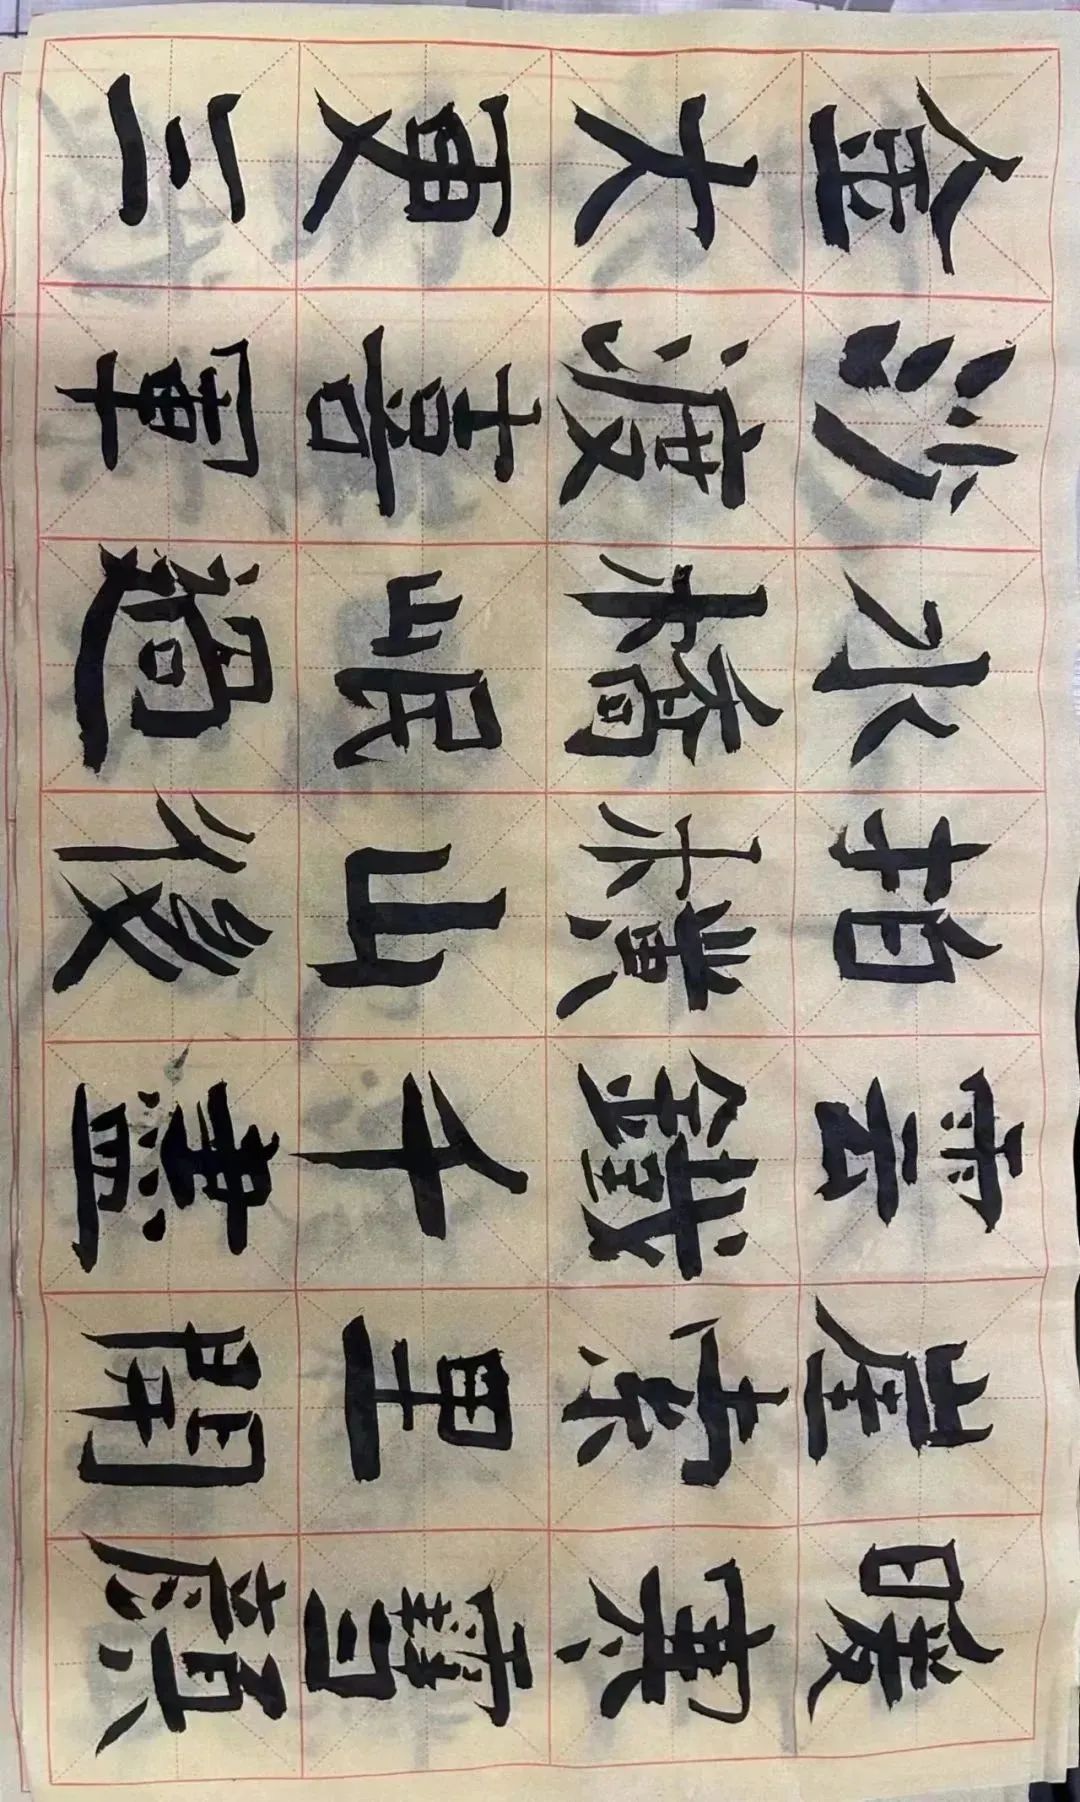 金沙水拍雲崖暖
大渡橋橫鐵索寒
更喜岷山千里䨮
三軍過後盡開顏